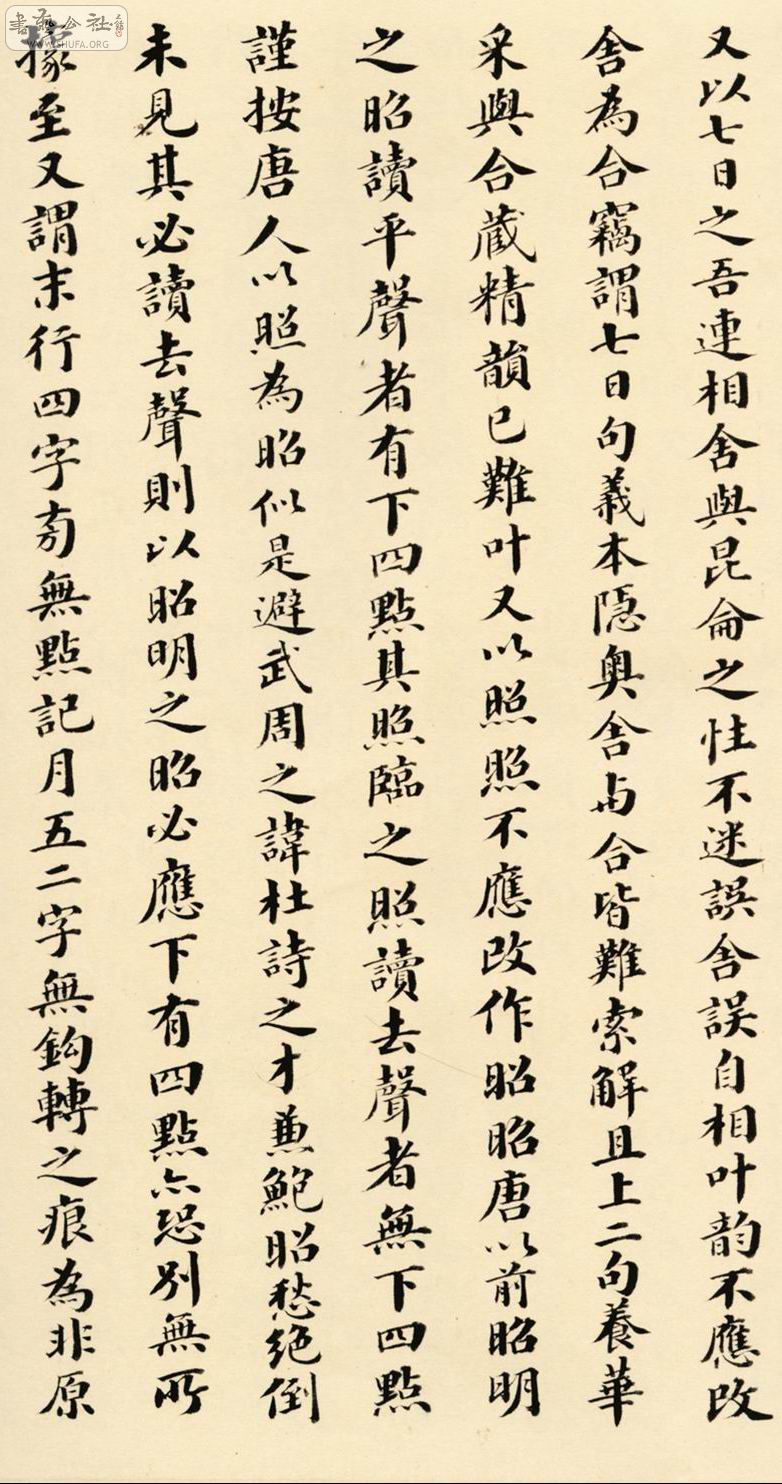 又以七日之吾連相舍與昆侖之性不迷誤舍誤自相叶韵不應改
舍為合竊謂七日句義本隱奧舍与合皆難索解且上二句養華
采與合藏精韻已難叶又以照照不應改作昭昭唐以前昭明
之昭讀平聲者有下四點其照臨之照讀去聲者無下四點
謹按唐人以照為昭似是避武周之諱杜詩之才兼鮑昭愁絕倒
未見其必讀去聲則以昭明之昭必應下有四點亦恐別無所
據至又謂末行四字旁無點記月五二字無鈎轉之痕為非原
書法公社
WWW.SHUFA.ORG